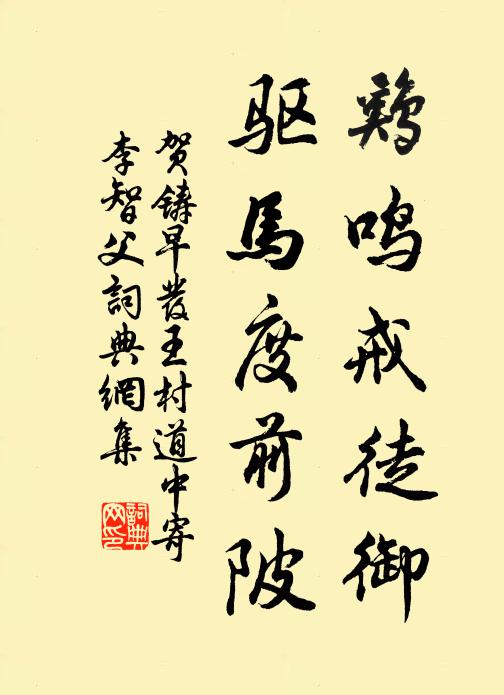 鷄鳴戒徒御
驱馬度前陂
贺鑄早發王村道中寄
李智父詞典網集
詞典
网印